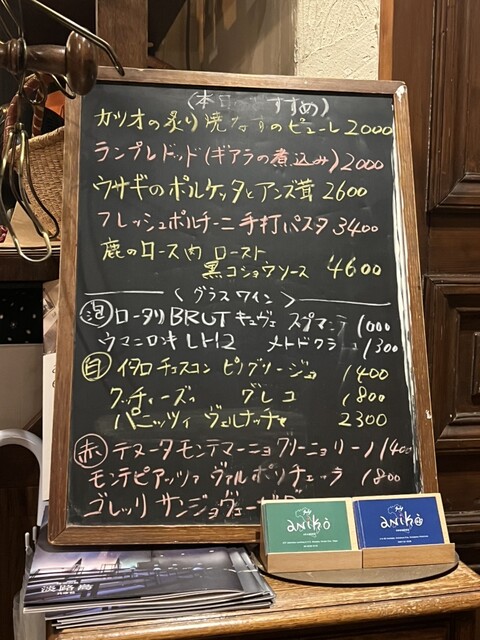 (本日のおすすめ)
カツオの炙り焼なすのピューレ 2000
ランプレドッド(ギアラの煮込み) 2000
ウサギのポルケッタとアンズ茸 2600
フレッシュポルチーニ手打パスタ 3400
鹿のロース肉 ロースト
黒コショウソース 4600
〈グラスワイン〉
泡 ロータリ BRUT キュヴェ 1000
ウマニロンキ メトド 1300
白 イタロチェスコン ピノグリージョ 1400
グレコ 1800
パニッツィ ヴェルナッチャ 2300
赤 テヌータモンテマーニョ グリーニョリーノ 1400
モンテピアッツォ ヴァルポリチェッラ 1800
ゴレッリ サンジョヴェーゼ
anikò
anikò